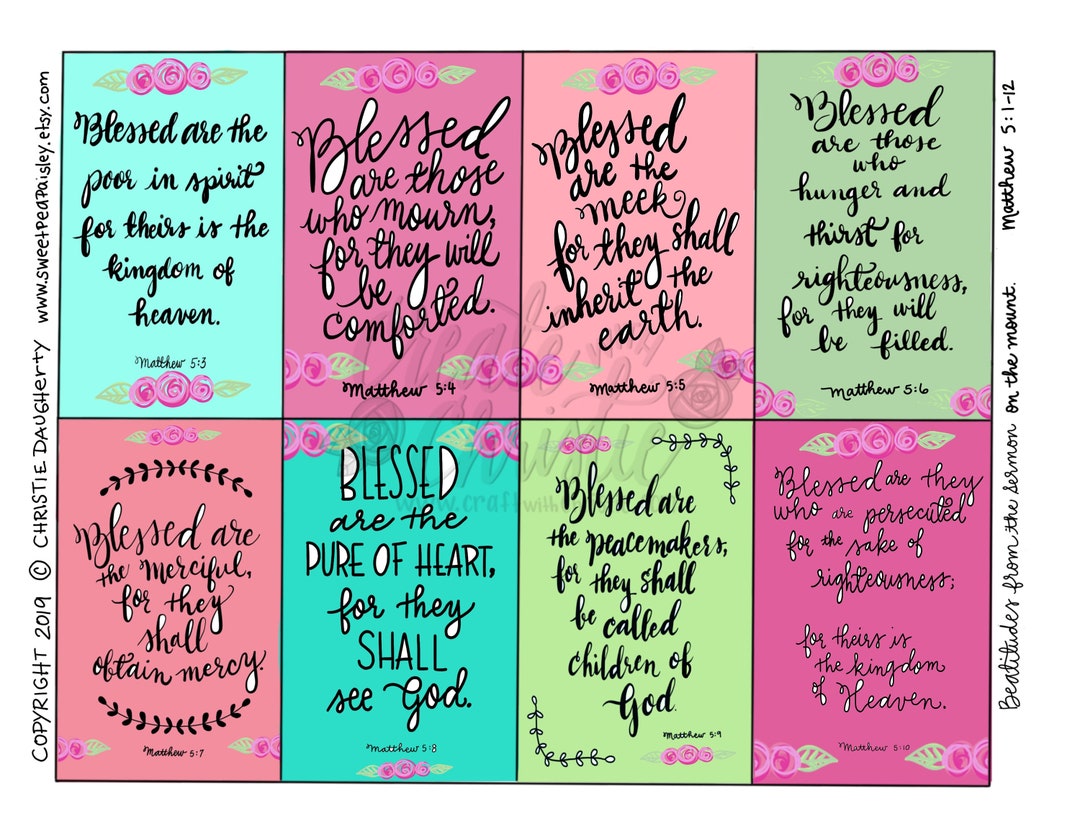 COPYRIGHT 2019 © CHRISTIE DAUGHERTY www.sweetpeapaisley.etsy.com
Blessed are the
poor in spirit
for theirs is the
kingdom of
heaven.
Matthew 5:3
Blessed
are those
who mourn,
for they will
be
comforted.
Matthew 5:4
Blessed
are the
meek
for they shall
inherit the
earth.
Matthew 5:5
Blessed
are those
who
hunger and
thirst for
righteousness,
for they will
be filled.
Matthew 5:6
Blessed are
the merciful,
for they
shall
obtain mercy.
Matthew 5:7
BLESSED
are the
PURE OF HEART,
for they
SHALL
see God.
Matthew 5:8
Blessed are
the peacemakers,
for they shall
be called
children of
God.
Matthew 5:9
Blessed are they
who are persecuted
for the sake of
righteousness;
for theirs is
the kingdom
of Heaven.
Matthew 5:10
Beatitudes from the sermon on the mount. Matthew 5:1-12
Christie
www.craftwith